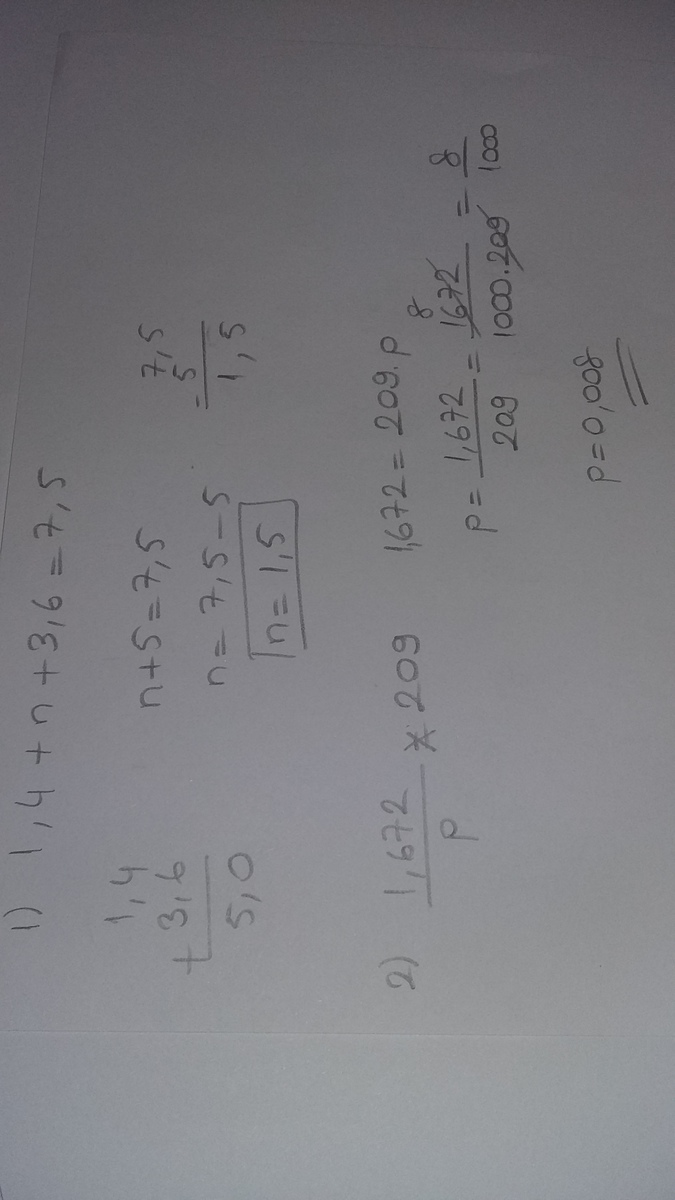 1) 1,4 + n + 3,6 = 7,5
1,4
+ 3,6
5,0
n + 5 = 7,5
n = 7,5 - 5
n = 1,5
7,5
- 5
1,5
2) 1,672 / p = 209
1,672 = 209.p
p = 1,672 / 209 = 1672 8 / 1000.209 = 8 / 1000
p = 0,008